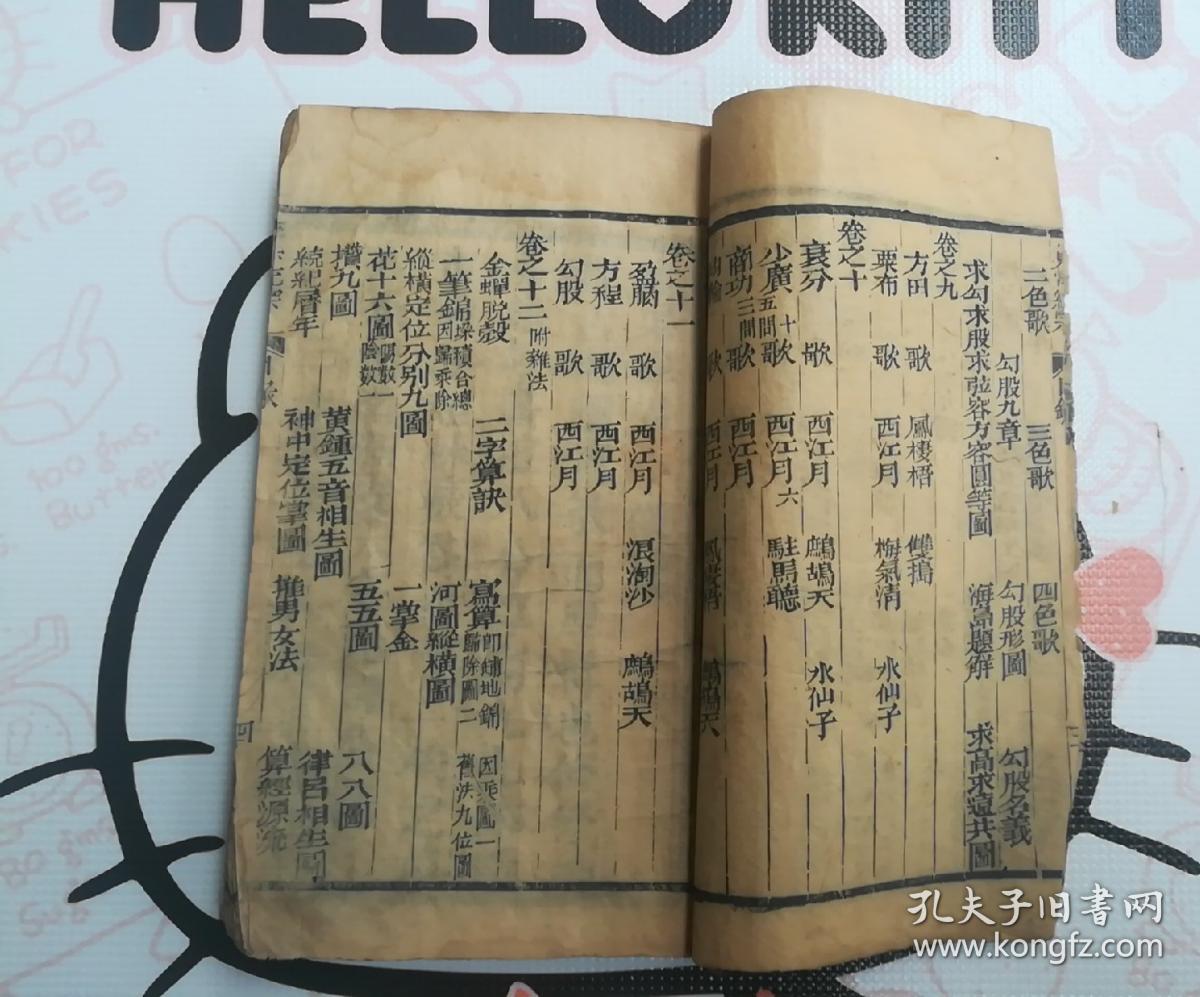 HELLO KITTY
二色歌 三色歌 四色歌
勾股九章 勾股形圖 勾股名義
求勾求股求弦容方容圓等圖 海島題解 求高求遠共圖
卷之九
方田 歌 鳳棲梧 雙搗
粟布 歌 西江月 梅氣清 水仙子
卷之十
衰分 歌 西江月 鷓鴣天 水仙子
少廣 五問 十歌 西江月 六 駐馬聽
商功 三問 歌 西江月
歌 西江月 鷓鴣天
卷之十一
盈朒 歌 西江月 浪淘沙 鷓鴣天
方程 歌 西江月
勾股 歌 西江月
卷之十二 附雜法
金蟬脫殼 二字算訣 寫算 即鋪地錦 歸除圖二 因乘圖一 舊法九位圖
一筆錦 堆垛積合總 因歸乘除
縱橫定位分別九圖 河圖縱橫圖
花十六圖 陽數一 陰數一 一掌金
攢九圖 黃鍾五音相生圖 五五圖 八八圖
統紀曆年 神中定位掌圖 推男女法 律呂相生圖
算經源流
四
FOR
KIES
100 gms.
Butter
孔夫子旧书网
www.kongfz.com